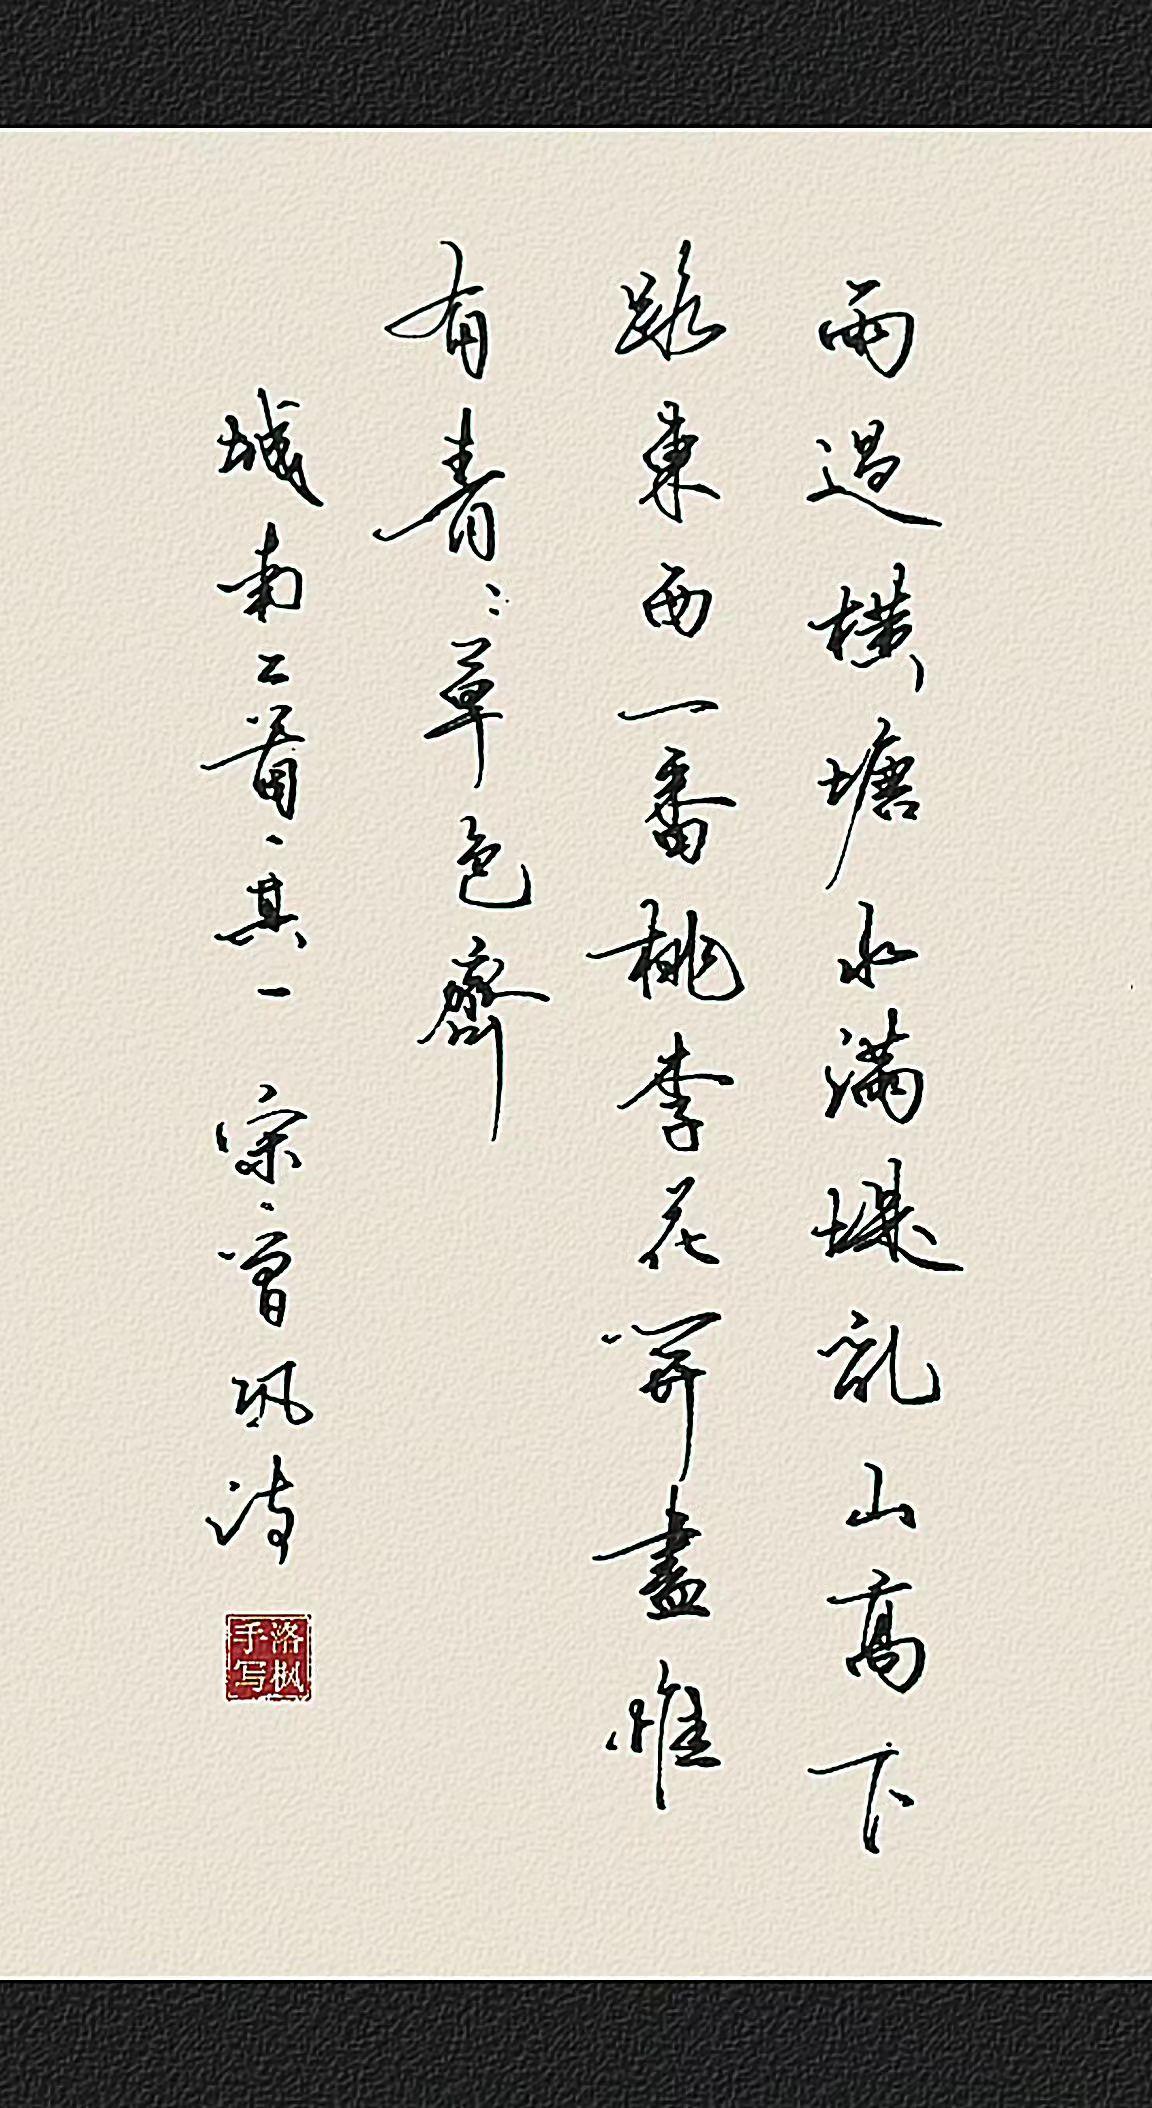 雨過橫塘水满堤亂山高下
路東西一番桃李花開盡惟
有青々草色齊
城南二首·其一 宋·曾巩诗
洛枫
手写